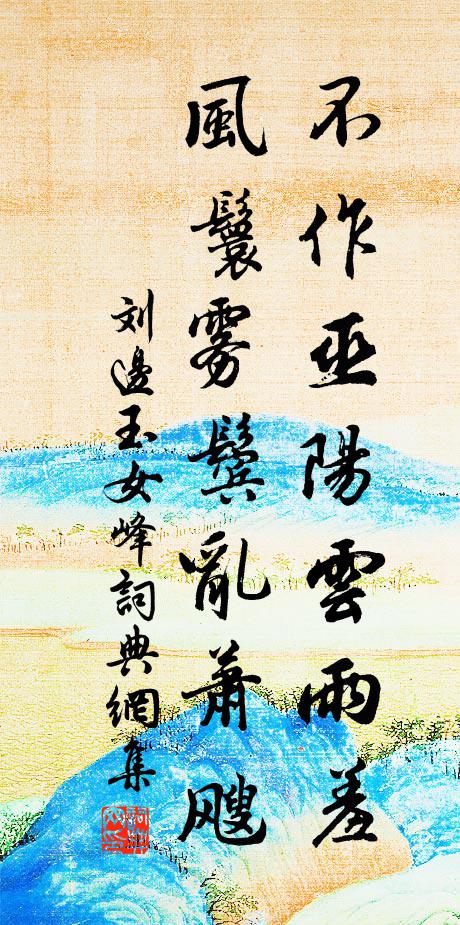 不作巫陽雲雨羞
風鬟雾鬓亂萧颼
刘邊玉女峰詞典網集